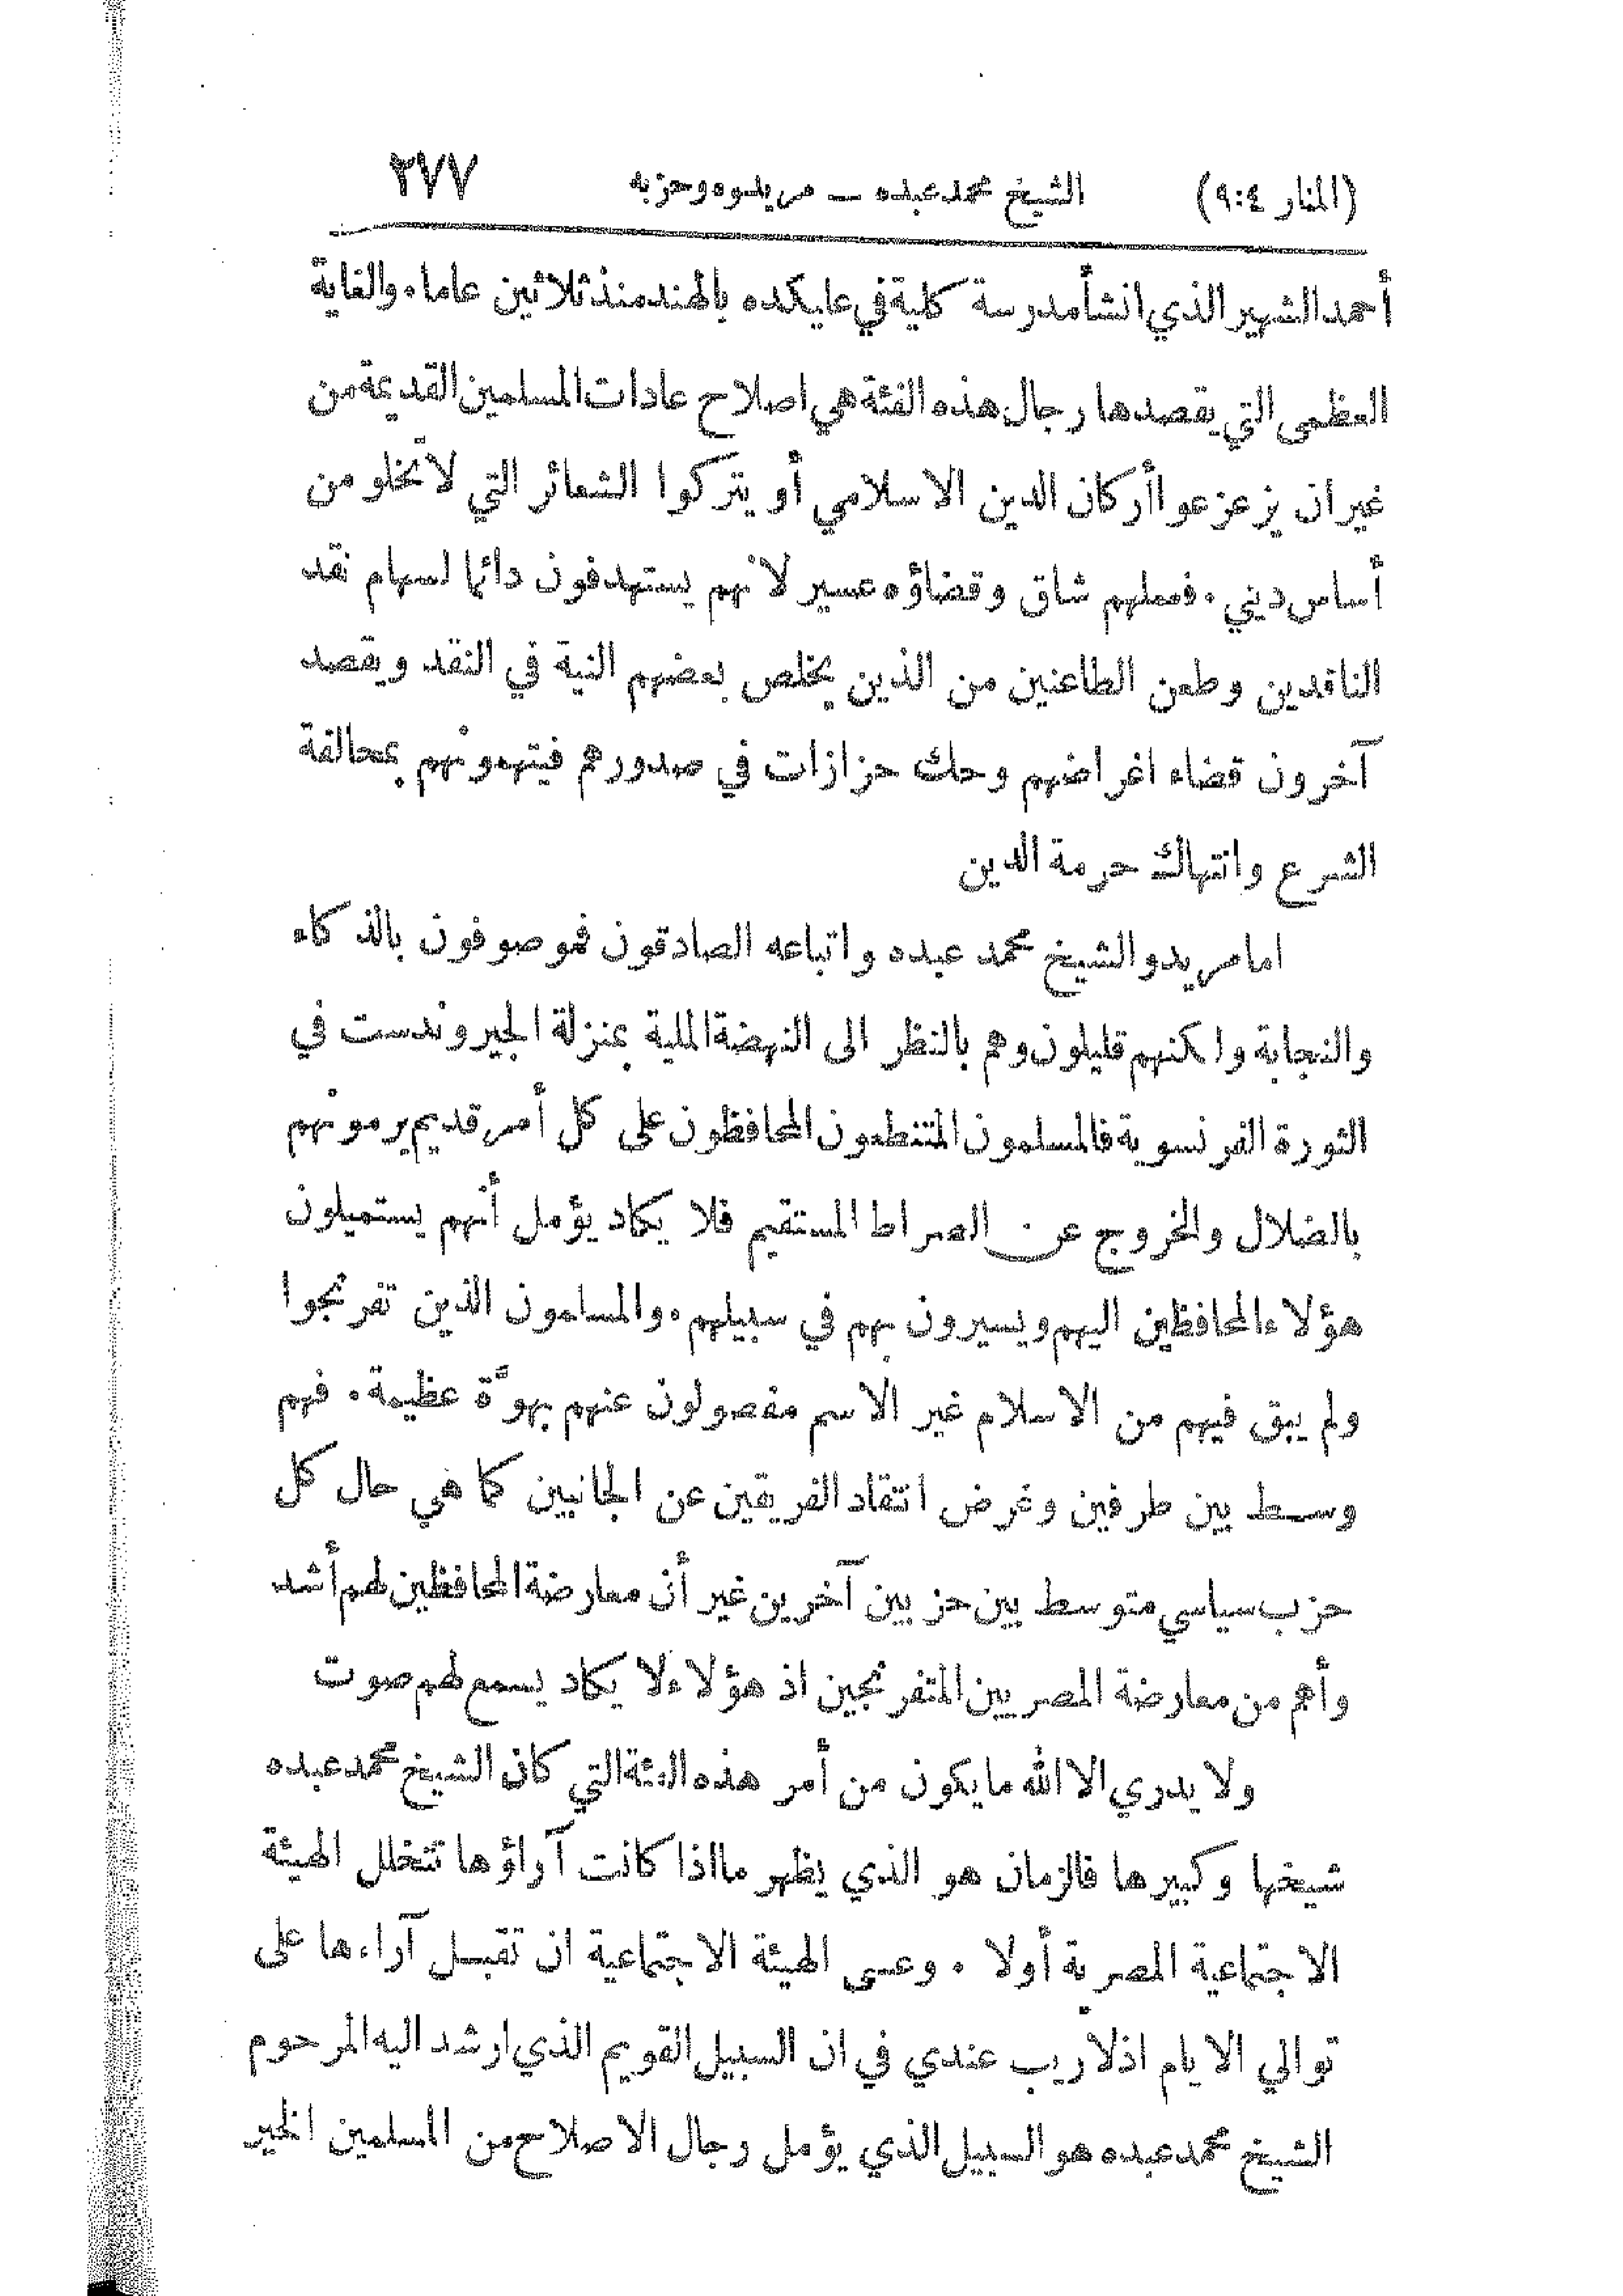 (المنار ٤:٩) الشيخ محمد عبده — مريدوه وحزبه ٢٧٧
أحمد الشهير الذي انشأ مدرسة كلية في عليكده بالهند منذ ثلاثين عاما . والغاية
العظمى التي يقصدها رجال هذه الفئة هي اصلاح عادات المسلمين القديمة من
غير ان يزعزعوا أركان الدين الاسلامي أو يتركوا الشعائر التي لا تخلو من
أساس ديني . فعملهم شاق وقضاؤه عسير لانهم يستهدفون دائما لسهام نقد
الناقدين وطعن الطاعنين من الذين يخلص بعضهم النية في النقد ويقصد
آخرون قضاء اغراضهم وحك حزازات في صدورهم فيتهمونهم بمخالفة
الشرع وانتهاك حرمة الدين
اما مريدو الشيخ محمد عبده واتباعه الصادقون فموصوفون بالذكاء
والنجابة ولكنهم قليلون وهم بالنظر الى النهضة الملية بمنزلة الجيروندست في
الثورة الفرنسوية فالمسلمون المتنطعون المحافظون على كل أمر قديم يرمونهم
بالضلال والخروج عن الصراط المستقيم فلا يكاد يؤمل أنهم يستميلون
هؤلاء المحافظين اليهم ويسيرون بهم في سبيلهم . والمسلمون الذين تفرنجوا
ولم يبق فيهم من الاسلام غير الاسم مفصولون عنهم بهوَّة عظيمة . فهم
وسط بين طرفين وغرض انتقاد الفريقين عن الجانبين كما هي حال كل
حزب سياسي متوسط بين حزبين آخرين غير أن معارضة المحافظين لهم أشد
وأهم من معارضة المصريين المتفرنجين اذ هؤلاء لا يكاد يسمع لهم صوت
ولا يدري الا الله ما يكون من أمر هذه الفئة التي كان الشيخ محمد عبده
شيخها وكبيرها فالزمان هو الذي يظهر ما اذا كانت آراؤها تتخلل الهيئة
الاجتماعية المصرية أولا . وعسى الهيئة الاجتماعية ان تقبل آراءها على
توالي الايام اذ لا ريب عندي في ان السبيل القويم الذي ارشد اليه المرحوم
الشيخ محمد عبده هو السبيل الذي يؤمل رجال الاصلاح من المسلمين الخير